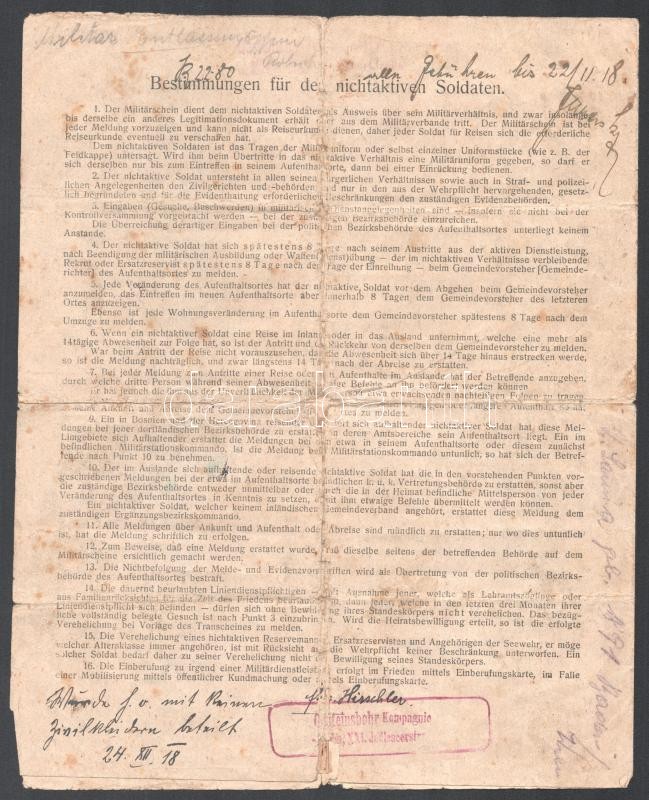 Militär
B 22.80
Gebühren bis 22/11.18.
Bestimmungen für de nichtaktiven Soldaten.
1. Der Militärschein dient dem nichtaktiven Soldaten als Ausweis über sein Militärverhältnis, und zwar insolange,
bis derselbe ein anderes Legitimationsdokument erhält oder aus dem Militärverbande tritt. Der Militärschein ist bei
jeder Meldung vorzuzeigen und kann nicht als Reiseurkunde dienen, daher jeder Soldat für Reisen sich die erforderliche
Reiseurkunde eventuell zu verschaffen hat.
Dem nichtaktiven Soldaten ist das Tragen der Militäruniform oder selbst einzelner Uniformstücke (wie z. B. der
Feldkappe) untersagt. Wird ihm beim Übertritte in das nichtaktive Verhältnis eine Militäruniform gegeben, so darf er
sich derselben nur bis zum Eintreffen in seinem Aufenthaltsorte, dann bei einer Einrückung bedienen.
2. Der nichtaktive Soldat untersteht in allen seinen bürgerlichen Verhältnissen sowie auch in Straf- und polizei-
lichen Angelegenheiten den Zivilgerichten und -behörden und nur in den aus der Wehrpflicht hervorgehenden, gesetz-
lich begründeten und für die Evidenthaltung erforderlichen Beschränkungen den zuständigen Evidenzbehörden.
3. Eingaben (Gesuche, Beschwerden) in militärischen Dienstangelegenheiten sind — insofern sie nicht bei der
Kontrollversammlung vorgebracht werden — bei der zuständigen Bezirksbehörde einzureichen.
Die Überreichung derartiger Eingaben bei der politischen Bezirksbehörde des Aufenthaltsortes unterliegt keinem
Anstande.
4. Der nichtaktive Soldat hat sich spätestens 8 Tage nach seinem Austritte aus der aktiven Dienstleistung,
nach Beendigung der militärischen Ausbildung oder Waffen(Dienst)übung — der im nichtaktiven Verhältnisse verbleibende
Rekrut oder Ersatzreservist spätestens 8 Tage nach dem Tage der Einreihung — beim Gemeindevorsteher [Gemeinde-
richter] des Aufenthaltsortes zu melden.
5. Jede Veränderung des Aufenthaltsortes hat der nichtaktive Soldat vor dem Abgehen beim Gemeindevorsteher
anzumelden, das Eintreffen im neuen Aufenthaltsorte aber innerhalb 8 Tagen dem Gemeindevorsteher des letzteren
Ortes anzuzeigen.
Ebenso ist jede Wohnungsveränderung im Aufenthaltsorte dem Gemeindevorsteher spätestens 8 Tage nach dem
Umzuge zu melden.
6. Wenn ein nichtaktiver Soldat eine Reise im Inlande oder in das Ausland unternimmt, welche eine mehr als
14tägige Abwesenheit zur Folge hat, so ist der Antritt und die Rückkehr von derselben dem Gemeindevorsteher zu melden.
War beim Antritt der Reise nicht vorauszusehen, daß die Abwesenheit sich über 14 Tage hinaus erstrecken werde,
so ist die Meldung nachträglich, und zwar längstens 14 Tage nach der Abreise zu erstatten.
7. Bei jeder Meldung zum Antritte einer Reise oder zum Aufenthalte im Auslande hat der Betreffende anzugeben,
durch welche dritte Person während seiner Abwesenheit etwaige Befehle an ihn befördert werden können
9. Ein in Bosnien und der Hercegovina reisender Soldat hat diese Mel-
dungen bei jener dortländischen Bezirksbehörde zu erstatten, in deren Amtsbereiche sein Aufenthalt liegt. Ein im
Limgebiete sich Aufhaltender erstattet die Meldungen bei dem etwa in seinem Aufenthaltsorte oder diesem zunächst
befindlichen Militärstationskommando. Ist die Meldung beim Militärstationskommando untunlich, so hat sich der Betref-
fende nach Punkt 10 zu benehmen.
10. Der im Auslande sich aufhaltende oder reisende nichtaktive Soldat hat die in den vorstehenden Punkten vor-
geschriebenen Meldungen bei der etwa im Aufenthaltsorte befindlichen k. u. k. Vertretungsbehörde zu erstatten, sonst aber
die zuständige Bezirksbehörde entweder unmittelbar oder durch die in der Heimat befindliche Mittelsperson von jeder
Veränderung des Aufenthaltsortes in Kenntnis zu setzen, damit ihm etwaige Befehle übermittelt werden können.
Ein nichtaktiver Soldat, welcher keinem inländischen Gemeindeverband angehört, erstattet diese Meldung dem
zuständigen Ergänzungsbezirkskommando.
11. Alle Meldungen über Ankunft und Aufenthalt oder Abreise sind mündlich zu erstatten; nur wo dies untunlich
ist, hat die Meldung schriftlich zu erfolgen.
12. Zum Beweise, daß eine Meldung erstattet wurde, muß dieselbe seitens der betreffenden Behörde auf dem
Militärscheine ersichtlich gemacht werden.
13. Die Nichtbefolgung der Melde- und Evidenzvorschriften wird als Übertretung von der politischen Bezirks-
behörde des Aufenthaltsortes bestraft.
14. Die dauernd beurlaubten Liniendienstpflichtigen — mit Ausnahme jener, welche als Lehramtszöglinge oder
aus Familienrücksichten
Liniendienstpflicht sich befinden — dürfen sich ohne Bewilligung ihres Standeskörpers nicht verehelichen. Das bezüg-
liche vollständig belegte Gesuch ist nach Punkt 3 einzubringen. Wird die Heiratsbewilligung erteilt, so ist die erfolgte
Verehelichung bei Vorlage des Trauscheines zu melden.
15. Die Verehelichung eines nichtaktiven Reservemannes, Ersatzreservisten und Angehörigen der Seewehr, er möge
welcher Altersklasse immer angehören, ist mit Rücksicht auf die Wehrpflicht keiner Beschränkung unterworfen. Ein
solcher Soldat bedarf daher zu seiner Verehelichung nicht der Bewilligung seines Standeskörpers.
16. Die Einberufung zu irgend einer Militärdienstleistung erfolgt im Frieden mittels Einberufungskarte, im Falle
einer Mobilisierung mittels öffentlicher Kundmachung oder mittels Einberufungskarte.
Wurde h. o. mit keinen
Zivilkleidern beteilt
24. XII. 18
Hirschler
Kompagnie
darabanth